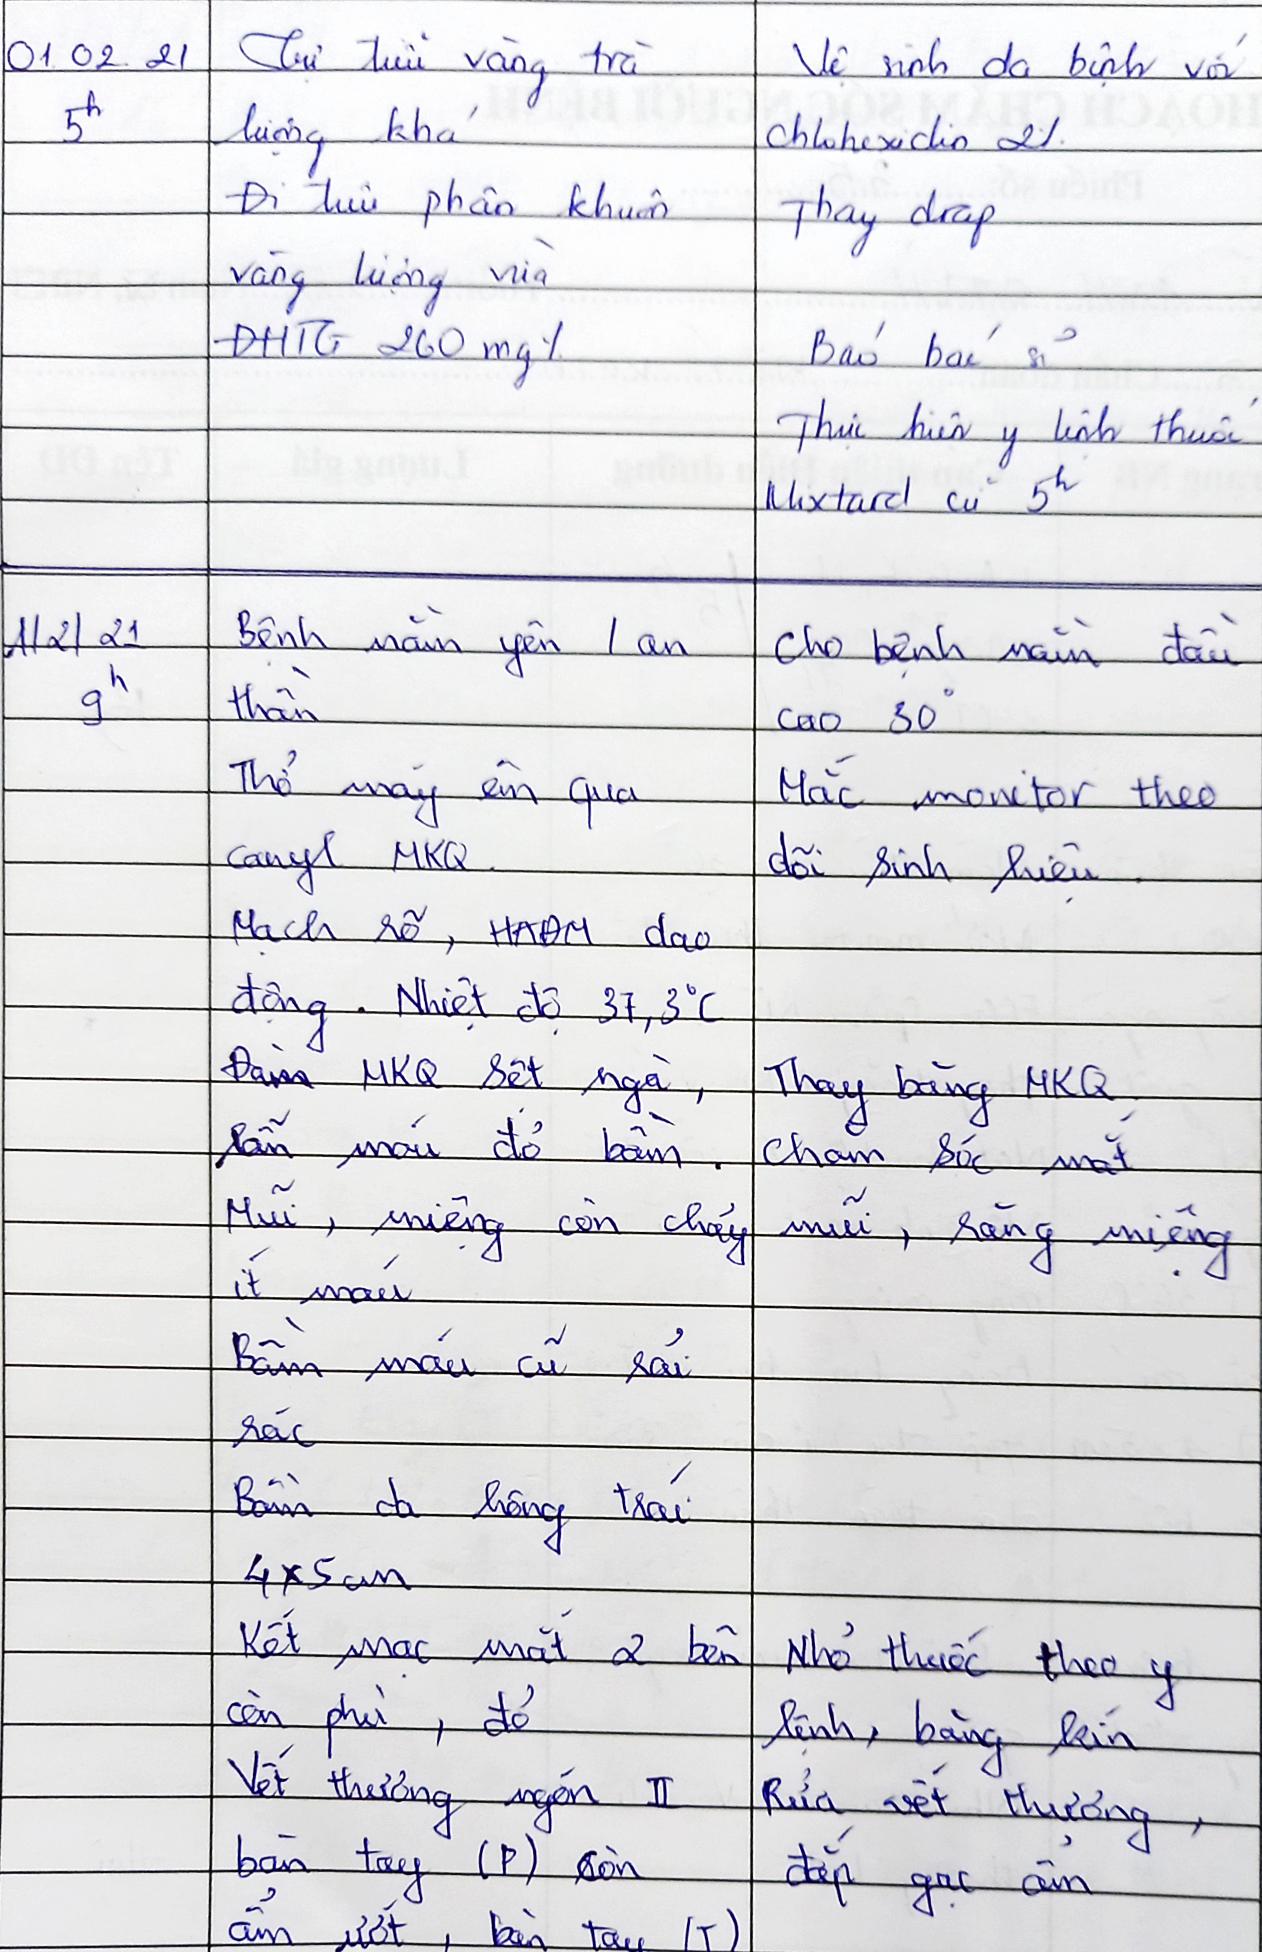 01.02.21
5h
Tự tiểu vàng trà
lượng khá
Đi tiêu phân khuôn
vàng lượng vừa
ĐHTG 260 mg%
Vệ sinh da bệnh với
Chlohexidin 2%.
Thay drap
Báo bác sĩ
Thực hiện y lệnh thuốc
Mixtard cử 5h
1/2/21
9h
Bệnh nằm yên / an
thần
Thở máy êm qua
canyl MKQ.
Mạch rõ, HAĐM dao
động. Nhiệt độ 37,3°C
Đàm MKQ sệt ngà,
lẫn máu đỏ bầm.
Mũi, miệng còn chảy
ít máu
Bầm máu cũ rải
rác
Bầm da hông trái
4x5cm
Kết mạc mắt 2 bên
còn phù, đỏ
Vết thương ngón II
bàn tay (P) còn
ẩm ướt, bàn tay (T)
Cho bệnh nằm đầu
cao 30°
Mắc monitor theo
dõi sinh hiệu.
Thay băng MKQ.
Chăm sóc mắt
mũi, răng miệng.
Nhỏ thuốc theo y
lệnh, băng kín
Rửa vết thương,
đắp gạc ẩm